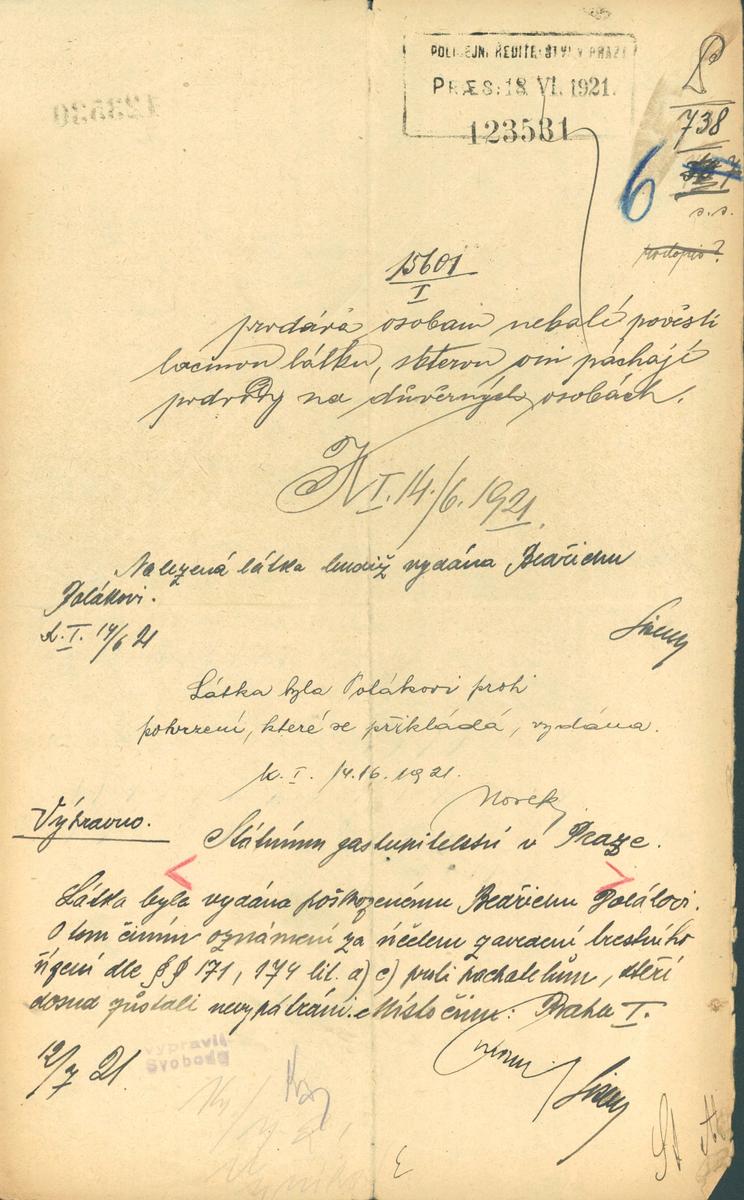 POLICEJNÍ ŘEDITELSTVÍ V PRAZE
PRÆS: 18. VI. 1921.
123531
123530
P
738
6
15601
I
prodává osobám nebalé pověsti
lacinou látku, kterou oni páchají
podvody na důvěrných osobách.
K I. 14./6. 1921.
Nalezená látka budiž vydána Bedřichu
Polákovi.
K. I. 14/6 21
Látka byla Polákovi proti
potvrzení, které se přikládá, vydána.
K. I. 14./6. 1921.
Novek
Výpravno.
Státnímu zastupitelství v Praze.
Látka byla vydána poškozenému Bedřichu Polákovi.
O tom činím oznámení za účelem zavedení trestního
řízení dle §§ 171, 174 lit. a) c) proti pachatelům, kteří
dosud zůstali nevypátráni. Místo činu: Praha I.
12/7 21.
vypravil
Svoboda